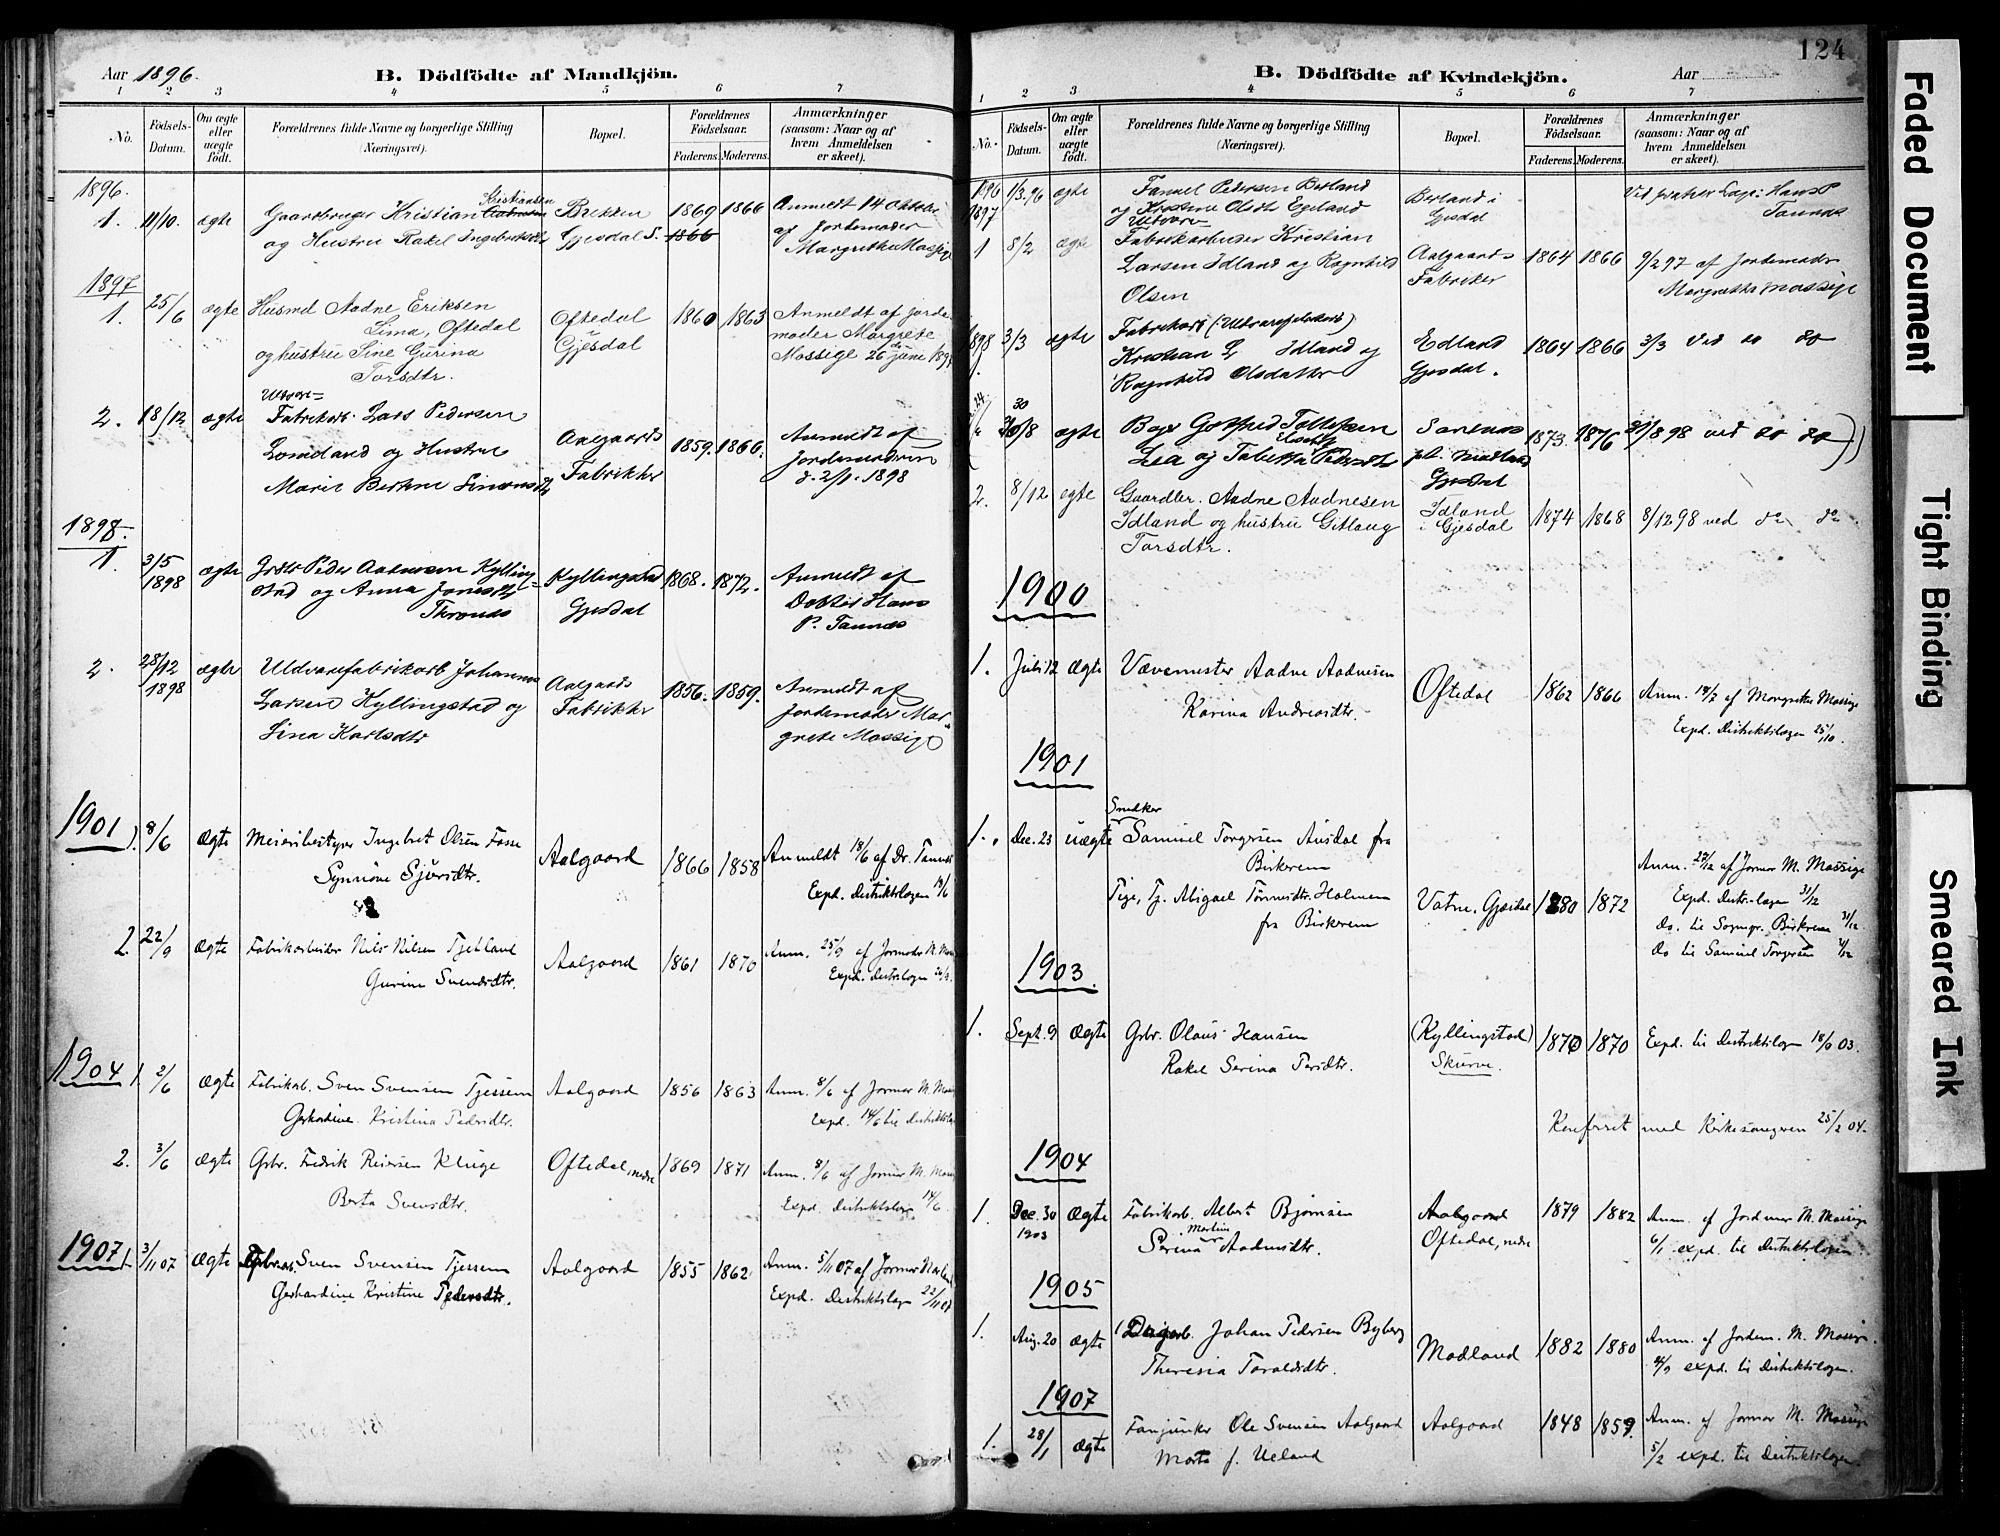 Aar 1896.
B. Dödfödte af Mandkjön.
1 2 3 4 5 6 7
No.
Födsels-Datum.
Om ægte eller uægte födt.
Forældrenes fulde Navne og borgerlige Stilling (Næringsvei).
Bopæl.
Forældrenes Födselsaar.
Faderens. Moderens.
Anmærkninger (saasom: Naar og af hvem Anmeldelsen er skeet).
1896.
Kristiansen
1. 11/10. ægte Gaardbruger Kristian Brekken 1869 1866 Anmeldt 14 Oktober
og Hustru Rakel Ingebretsdtr Gjesdal S. 1866 af Jordemoder
Margretha Mossige
1897
1. 25/6 ægte Husmd Aadne Eriksen Oftedal 1860 1863 Anmeldt af Jorde
Sima, Oftedal i Gjesdal moder Margrete
og hustru Sine Gurina Mossige 26 de juni 189
Torsdtr.
Uldvare=
2. 18/12 ægte Fabrikarb. Lars Pedersen Aalgaards 1859. 1860. Anmeldt af
Lomeland og Hustru Fabrikker Jordemoderen
Marie Bertine Simonsdtr d. 2/1. 1898
1898.
1. 3/5 1898 ægte Grdbr Peder Aatnesen Kylling= Kyllingstad 1868. 1872. Anmeldt af
stad og Anna Jonasdtr Gjesdal Doktor Hans
Thronds P. Tannæs
2. 28/12 1898 ægte Uldvarefabrikarb Johannes Aalgaards 1856. 1859. Anmeldt af
Larsen Kyllingstad og Fabrikker Jordemoder Mar
Sina Karlsdtr grete Mossige
1901
1. 8/6 ægte Meieribestyrer Ingebret Olsen Fosse Aalgaard 1866 1858 Anmeldt 18/6 af Dr. Tannæs
Synnöve Sjursdtr. Expd. Distriktslægen 19/6
2. 22/9 ægte Fabrikarbeider Nils Nilsen Tjetland Aalgaard 1861 1870 Anm. 25/9 af Jormoder M. Mos
Gurine Svendsdtr. Expd. distrslægen 26/9
1904
1. 2/6 ægte Fabrikarb. Sven Svensen Tjessem Aalgaard 1856 1863 Anm. 8/6 af Jormor M. Mos
Gerhardine Kristina Pedersdtr. Expd. 14/6 til Distriktslæ
2. 3/6 ægte Grbr. Fredrik Reiersen Kluge Oftedal, nedre 1869 1871 Anm. 8/6 af Jormor M. Mos
Berta Svensdtr. Expd. Distriktslægen 14/6
1907
1. 3/11 07 ægte Fabrarb. Sven Svensen Tjessem Aalgaard 1855 1862 Anm. 5/11 07 af Jormor
Gerhardine Kristine Pedersdtr. Expd. Distriktslægen 22/11 07
124
B. Dödfödte af Kvindekjön.
Aar
1 2 3 4 5 6 7
No.
Födsels-Datum.
Om ægte eller uægte födt.
Forældrenes fulde Navne og borgerlige Stilling (Næringsvei).
Bopæl.
Forældrenes Födselsaar.
Faderens. Moderens.
Anmærkninger (saasom: Naar og af hvem Anmeldelsen er skeet).
1896 1/3.96 ægte Pedersen Berland Berland i Hans P
og Kristine Olsdtr Egeland Gjesdal Tannæs
1897
Uldvare=
1 8/2 ægte Fabrikarbeider Kristian Aalgaards 1864 1866 9/2 97 af Jordemoder
Larsen Idland og Ragnhild Fabriker Margretha Mossige
Olsen
1898 3/3 ægte Fabrikarb (Uldvarefabrikarb) Edland 1864 1866 3/3 ved do do
Kristian L. Idland og Gjesdal.
Ragnhild Olsdatter
30/8 ægte Gotfred Tollefsen 1873. 1876 31/8 98 ved do do
Lea og Tabetta Pedersdtr pl. Madland
Gjesdal
2. 8/12 ægte Gaardbr. Aadne Aadnesen Idland 1874 1868 8/12 98 ved do do
Idland og hustru Gitlaug i Gjesdal
Torsdtr.
1900
1. Juli 12 ægte Vævemester Aadne Aadnesen Oftedal 1862 1866 Anm. 14/7 af Margrethe Mossige
Karina Andreasdtr. Expd. Distriktslægen 25/10.
1901
Snedker
1. Dec. 23 uægte Samuel Torgersen Ausdal fra
Birkrem Anm. 27/12 af Jormor M. Mossige
Pige, Tj. Abigael Tønnesdtr. Holmen Vatne, Gjesdal 1880 1872 Expd. Distr.-lægen 31/12
fra Birkrem do. til Sognepr. Birkrem 31/12
do til Samuel Torgersen 31/12
1903.
1. Sept. 9 ægte Grbr. Olaus Hansen (Kyllingstad) 1870 1870 Expd. til Distriktslægen 18/9 03.
Rakel Serina Persdtr. Skurve.
Konferert med Kirkesangeren 25/2 04.
1904
1. Dec. 30 1903 ægte Fabrikarb. Albert Bjørnsen Aalgaard 1879 1882 Anm. af Jordmor M. Mossige
Serina Martine Aadnesdtr. Oftedal, nedre 6/1 expd. til Distriktslægen.
1905
1. Aug. 20 ægte Johan Pedersen Byberg Madland 1882 1880 Anm. af Jordem. M. Mossige.
Theresia Toraldsdtr. expd. til Distriktslægen.
1907
1. 28/1 ægte Fanejunker Ole Svensen Aalgaard Aalgaard 1848 1859. Anm. af Jormor M. Mossige
Marta f. Ueland 5/2 expd. til Distriktslægen.
Faded Document
Tight Binding
Smeared Ink